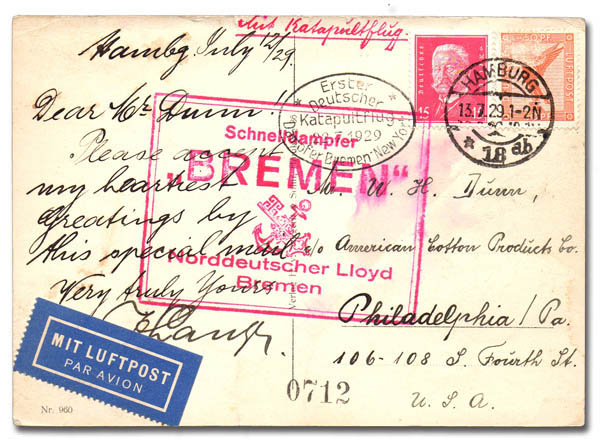 Mit Katapultflug.
Hambg. July 12/29.
Dear Mr. Dunn!
Please accept
my heartiest
Greetings by
this special mail
Very truly Yours
Deutsches
15
50 PF
LUFTPOST
HAMBURG
13.7.29.1-2N
* 1 8 db
Erster
Deutscher
Katapultflug
22.7.1929
Dampfer Bremen-New York
Schnelldampfer
„BREMEN“
Norddeutscher Lloyd
Bremen
Mr. W. H. Dunn,
c/o American Cotton Products Co.
Philadelphia/Pa.
106-108 S. Fourth St.
U.S.A.
MIT LUFTPOST
PAR AVION
0712
Nr. 960